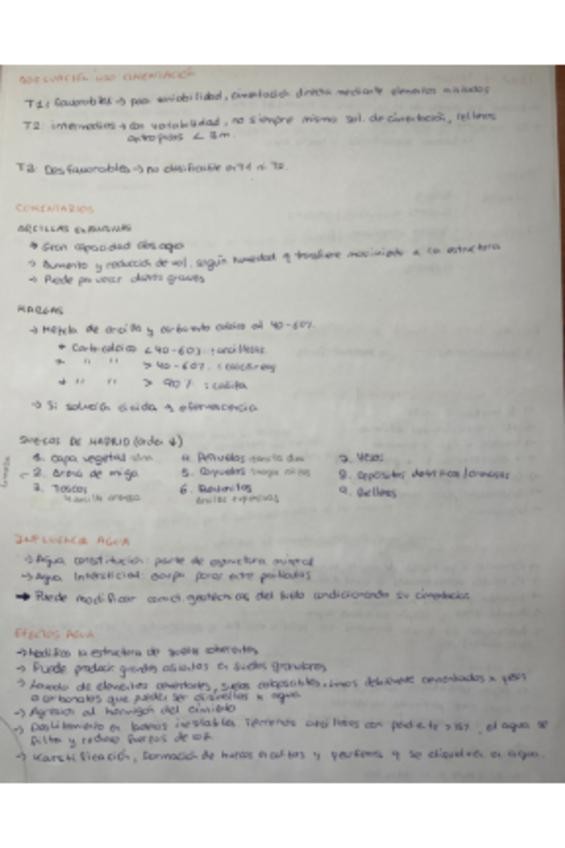 ADECUACIÓN USO CIMENTACIÓN
T1: favorables → poca variabilidad, cimentación directa mediante elementos aislados
T2: intermedios → con variabilidad, no siempre misma sol. de cimentación, rellenos
antrópicos < 3m.
T3: Desfavorables → no clasificable en T1 ni T2.
COMENTARIOS
ARCILLAS EXPANSIVAS
→ Gran capacidad abs agua
→ Aumento y reducción de vol. según humedad q transfiere movimiento a la estructura
→ Puede provocar daños graves
MARGAS
→ Mezcla de arcilla y carbonato cálcico al 40-60%.
* Carb. cálcico < 40-60% : arcillosas
* " " > 40-60% : calcáreas
* " " > 90% : caliza
→ Si solución ácida → efervescencia
SUELOS DE MADRID (orden ↓)
1. capa vegetal 4. Arenosos 7. Yesos
2. Arena de miga 5. 8. Depósitos detríticos/
3. Toscos 6. 9. Rellenos
arcilla arenosa arcillas expansivas
INFLUENCIA AGUA
→ Agua constitución: parte de estructura mineral
→ Agua Intersticial: ocupa poros entre partículas
→ Puede modificar caract. geotécnicas del suelo condicionando su cimentación
EFECTOS AGUA
→ Modifica la estructura de suelos coherentes
→ Puede producir grandes asientos en suelos granulares
→ Lavado de elementos cementantes, suelos colapsables, limos débilmente cementados x yesos
o carbonatos que pueden ser disueltos x agua
→ Agresión al hormigón del cimiento
→ Deslizamiento en laderas inestables. Terrenos arcillosos con pendiente > 15%, el agua se
filtra y reduce fuerzas de
→ Karstificación, formación de huecos en calizas y yesíferos q se disuelven en agua.